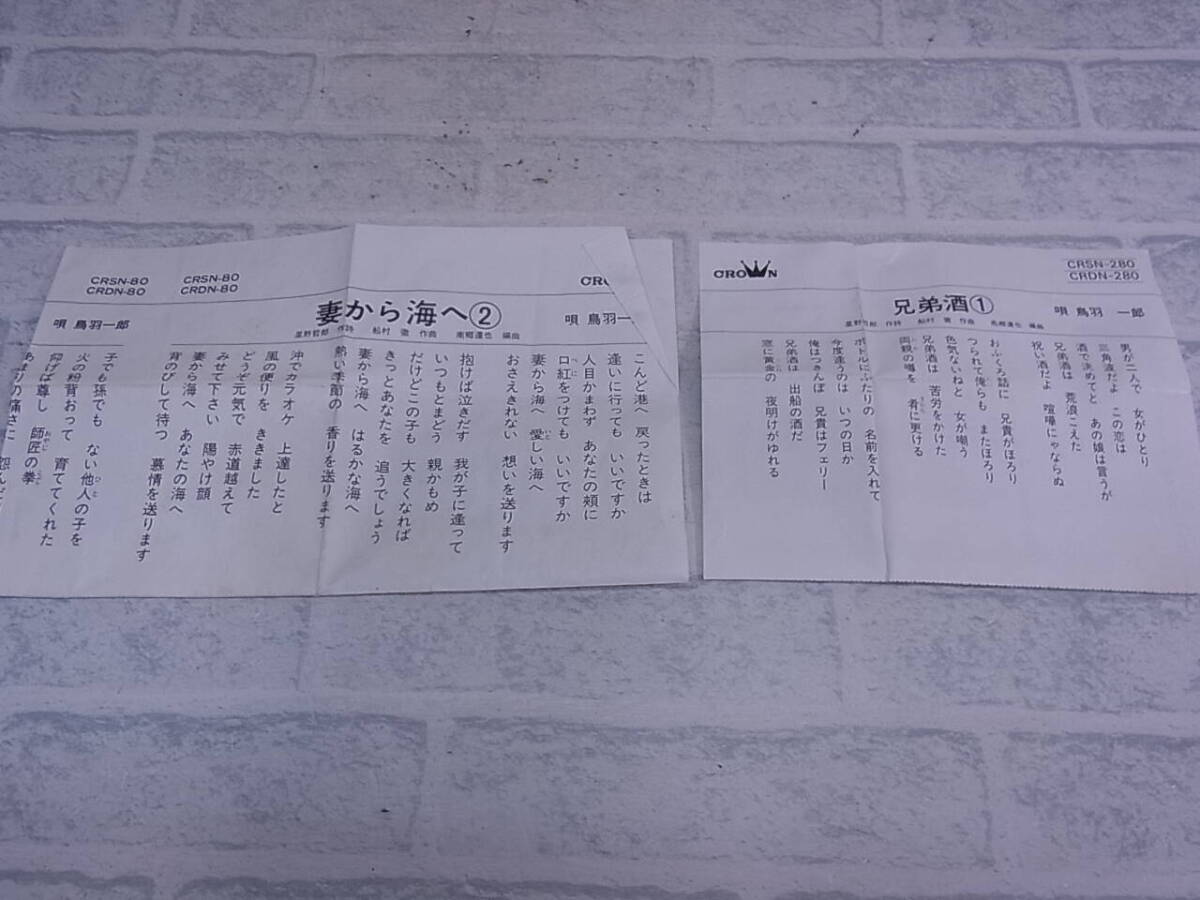 CRSN-80
CRDN-80
CRSN-80
CRDN-80
妻から海へ②
星野哲郎 作詩 船村 徹 作曲 南郷達也 編曲
唄 鳥羽一
唄 鳥羽一郎
こんど港へ 戻ったときは
逢いに行っても いいですか
人目かまわず あなたの頬に
口紅をつけても いいですか
妻から海へ 愛しい海へ
おさえきれない 想いを送ります
抱けば泣きだす 我が子に逢って
いつもとまどう 親かもめ
だけどこの子も 大きくなれば
きっとあなたを 追うでしょう
妻から海へ はるかな海へ
熱い季節の 香りを送ります
沖でカラオケ 上達したと
風の便りを ききました
どうぞ元気で 赤道越えて
みせて下さい 陽やけ顔
妻から海へ あなたの海へ
背のびして待つ 慕情を送ります
子でも孫でも ない他人の子を
火の粉背おって 育ててくれた
仰げば尊し 師匠の拳
あまりの痛さに
CROWN
CRSN-280
CRDN-280
兄弟酒①
星野哲郎 作詩 船村 徹 作曲 南郷達也 編曲
唄 鳥羽 一郎
男が二人で 女がひとり
三角波だよ この恋は
酒で決めてと あの娘は言うが
兄弟酒は 荒浪こえた
祝い酒だよ 喧嘩にゃならぬ
おふくろ話に 兄貴がほろり
つられて俺らも またほろり
色気ないねと 女が嘲う
兄弟酒は 苦労をかけた
両親の噂を 肴に更ける
ボトルにふたりの 名前を入れて
今度逢うのは いつの日か
俺はつきんぼ 兄貴はフェリー
兄弟酒は 出船の酒だ
窓に黄金の 夜明けがゆれる